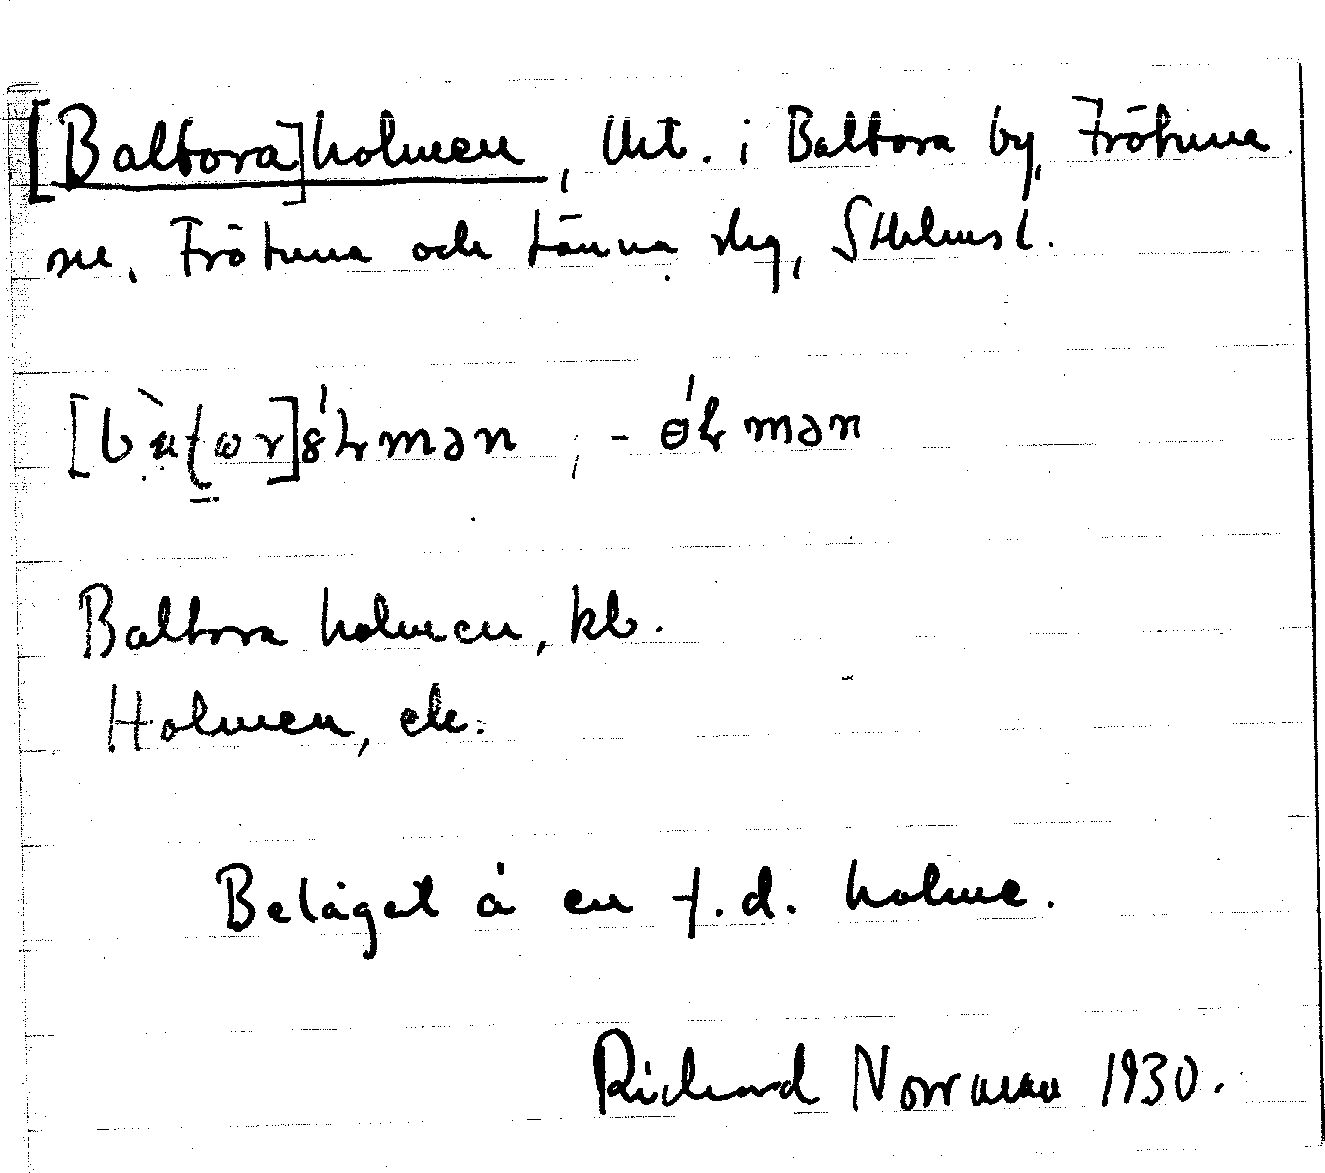 [Baltora]holmen, lht. i Baltora by, Frötuna
sn, Frötuna och Länna slg, Sthlms l.
Baltora holmen, kb.
Holmen, ek.
Beläget å en f.d. holme.
Richard Norrman 1930.